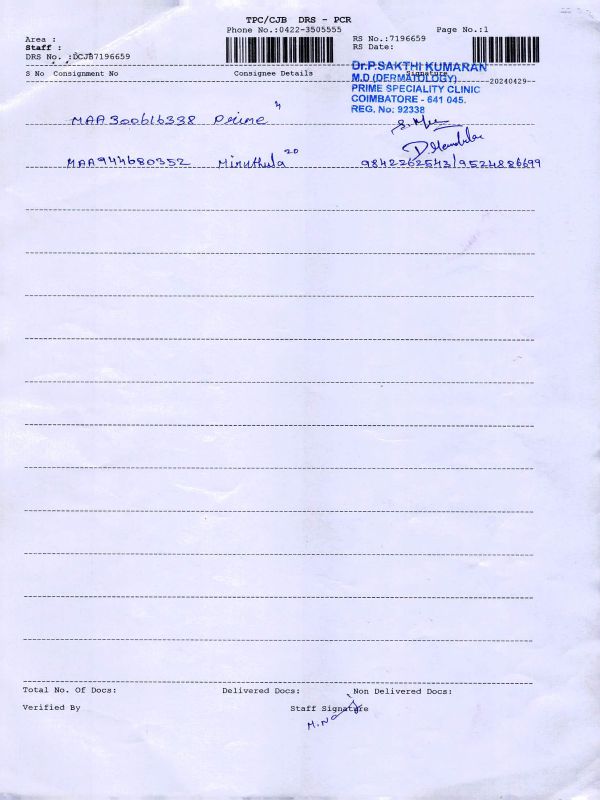 TPC/CJB DRS - PCR
Phone No.:0422-3505555 Page No.:1
Area :
Staff :
DRS No. :DCJB7196659
RS No.:7196659
RS Date:
S No Consignment No Consignee Details Signature
20240429
Dr.P.SAKTHI KUMARAN
M.D (DERMATOLOGY)
PRIME SPECIALITY CLINIC
COIMBATORE - 641 045.
REG. No: 92338
MAA300616338 Prime 4
MAA944680352 Miruthula 20 9842262543/9524886699
Total No. Of Docs: Delivered Docs: Non Delivered Docs:
Verified By Staff Signature